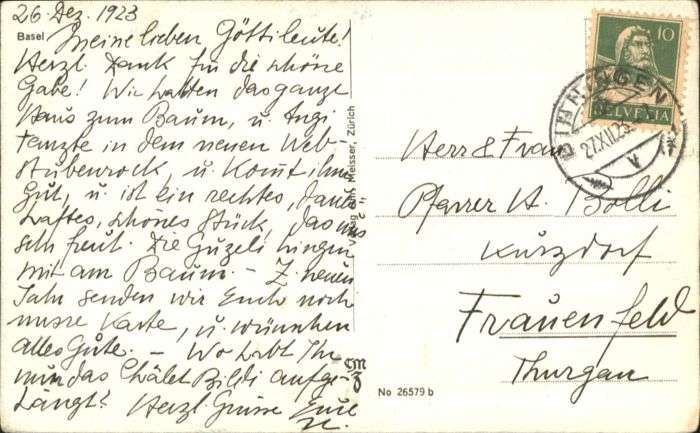 26. Dez. 1923
Basel
Meine lieben Göttileute!
Herzl. Dank für die schöne
Gabe! Wir hatten das ganze
Haus zum Baum, u. Angi
tanzte in dem neuen Web-
stubenrock, u. kommt ihm
Gut, u. ist ein rechtes, dank-
haftes, schönes Stück, das uns
sehr freut. Die Güzeli hingen
mit am Baum. – Z. neuen
Jahr senden wir Euch noch
unsre Karte, u. wünschen
alles Gute. – Wo habt Ihr
nun das Chälet Bildi aufge-
hängt? Herzl. Grüsse Eure
Verlag Meisser, Zürich
10
HELVETIA
27.XII.23
Herr & Frau
Pfarrer A. Bolli
Kurzdorf
Frauenfeld
Thurgau
No 26579 b